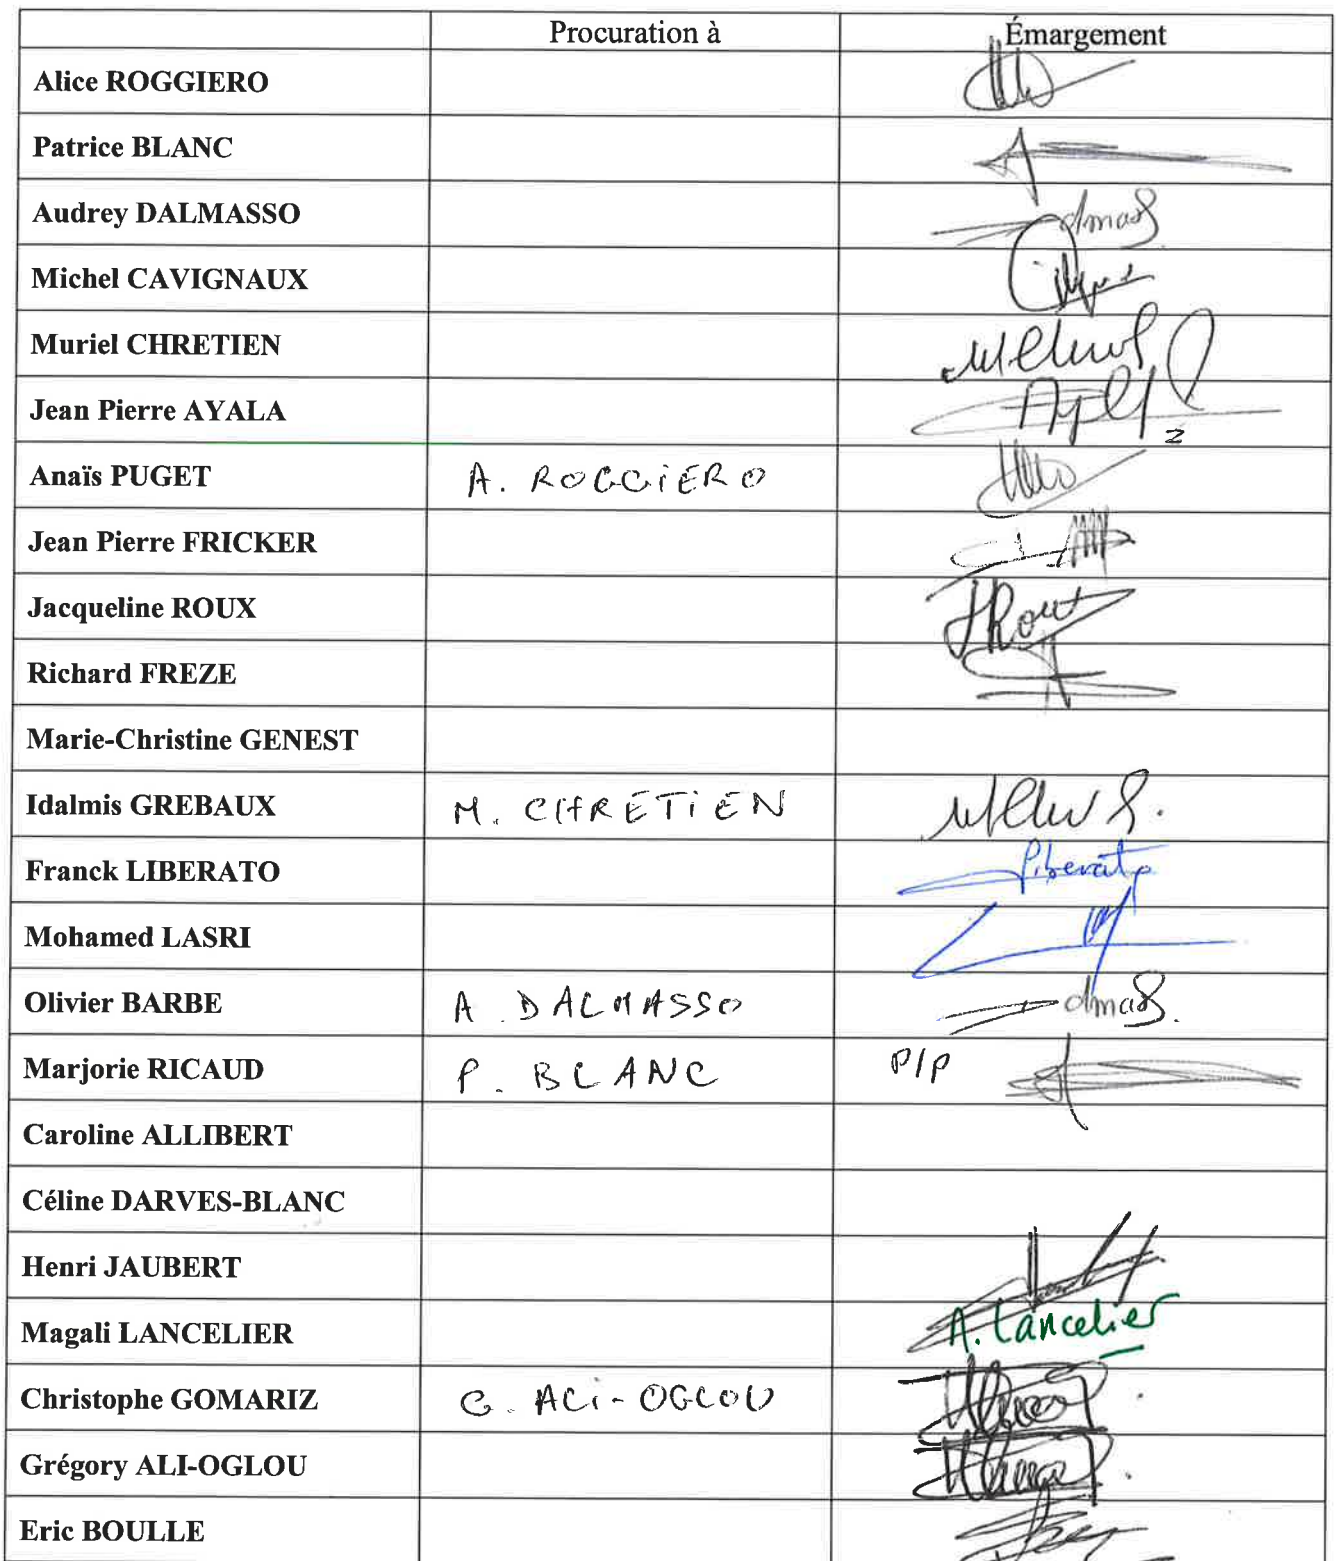 Procuration à Émargement
Alice ROGGIERO
Patrice BLANC
Audrey DALMASSO dmas
Michel CAVIGNAUX
Muriel CHRETIEN
Jean Pierre AYALA
Anaïs PUGET A. ROGGIERO
Jean Pierre FRICKER
Jacqueline ROUX JRoux
Richard FREZE
Marie-Christine GENEST
Idalmis GREBAUX M. CHRETIEN
Franck LIBERATO Liberato
Mohamed LASRI
Olivier BARBE A. DALMASSO dmas
Marjorie RICAUD P. BLANC P/P
Caroline ALLIBERT
Céline DARVES-BLANC
Henri JAUBERT
Magali LANCELIER A. Lancelier
Christophe GOMARIZ G. ALi-OGLOU
Grégory ALI-OGLOU
Eric BOULLE